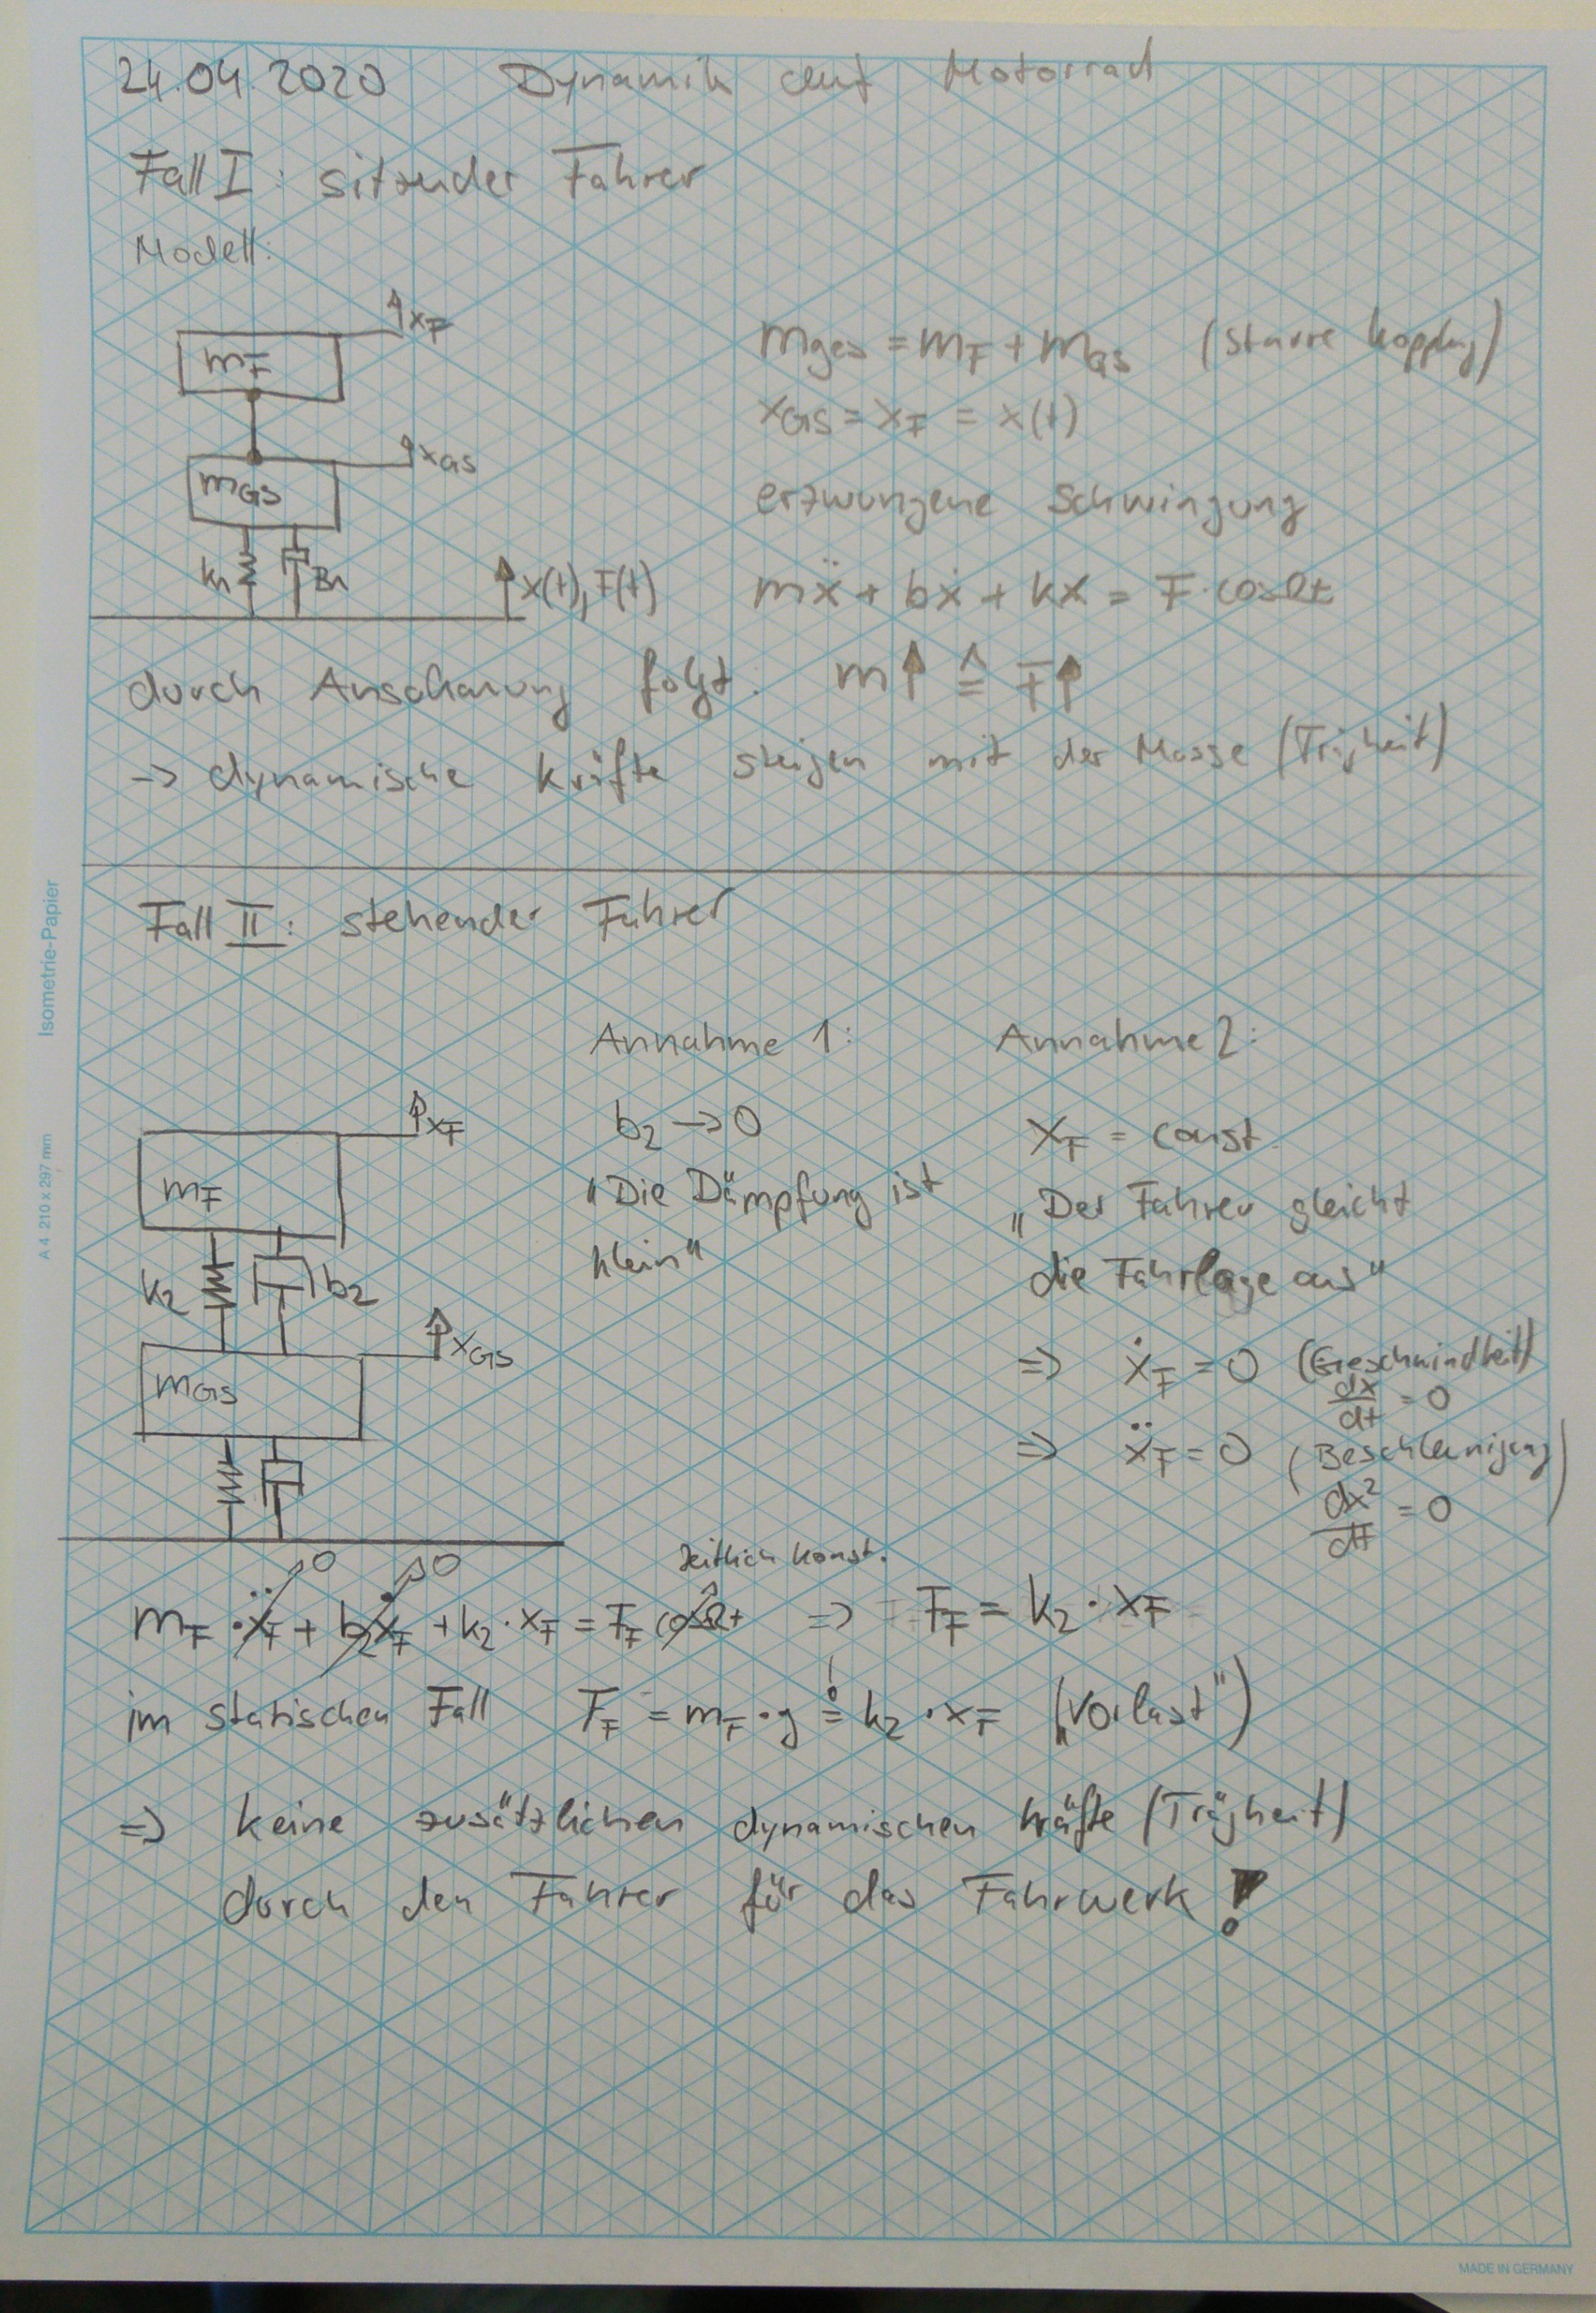 24.04.2020 Dynamik auf Motorrad
Fall I: sitzender Fahrer
Modell:
x_F
m_F
m_ges = m_F + m_GS (starre Kopplung)
x_GS = x_F = x(t)
x_GS
m_GS
erzwungene Schwingung
k₁ B₁ x(t), F(t)
mẍ + bẋ + kx = F·cosΩt
durch Anschauung folgt: m↑ ≙ F↑
-> dynamische Kräfte steigen mit der Masse (Trägheit)
Fall II: stehender Fahrer
Annahme 1: Annahme 2:
x_F
b₂ -> 0
x_F = const.
m_F
"Die Dämpfung ist
klein"
„Der Fahrer gleicht
die Fahrlage aus"
k₂ b₂
x_GS
m_GS
=> ẋ_F = 0 (Geschwindkeit)
dx/dt = 0
=> ẍ_F = 0 (Beschleunigung)
dx²/dt = 0
0 0 zeitlich konst.
m_F·ẍ_F + b₂ẋ_F + k₂·x_F = F_F cosΩt => F_F = k₂·x_F
im statischen Fall F_F = m_F·g =! k₂·x_F („Vorlast")
=> keine zusätzlichen dynamischen Kräfte (Trägheit)
durch den Fahrer für das Fahrwerk!
Isometrie-Papier
A 4 210 x 297 mm
MADE IN GERMANY